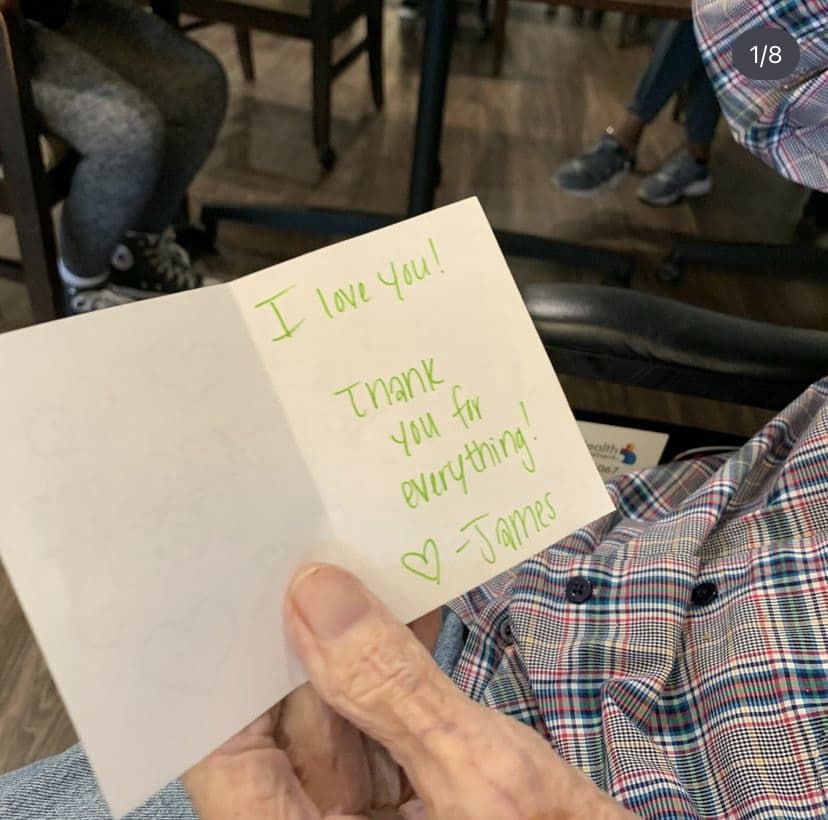 1/8
I love you!
Thank
you for
everything!
♡ -James
067